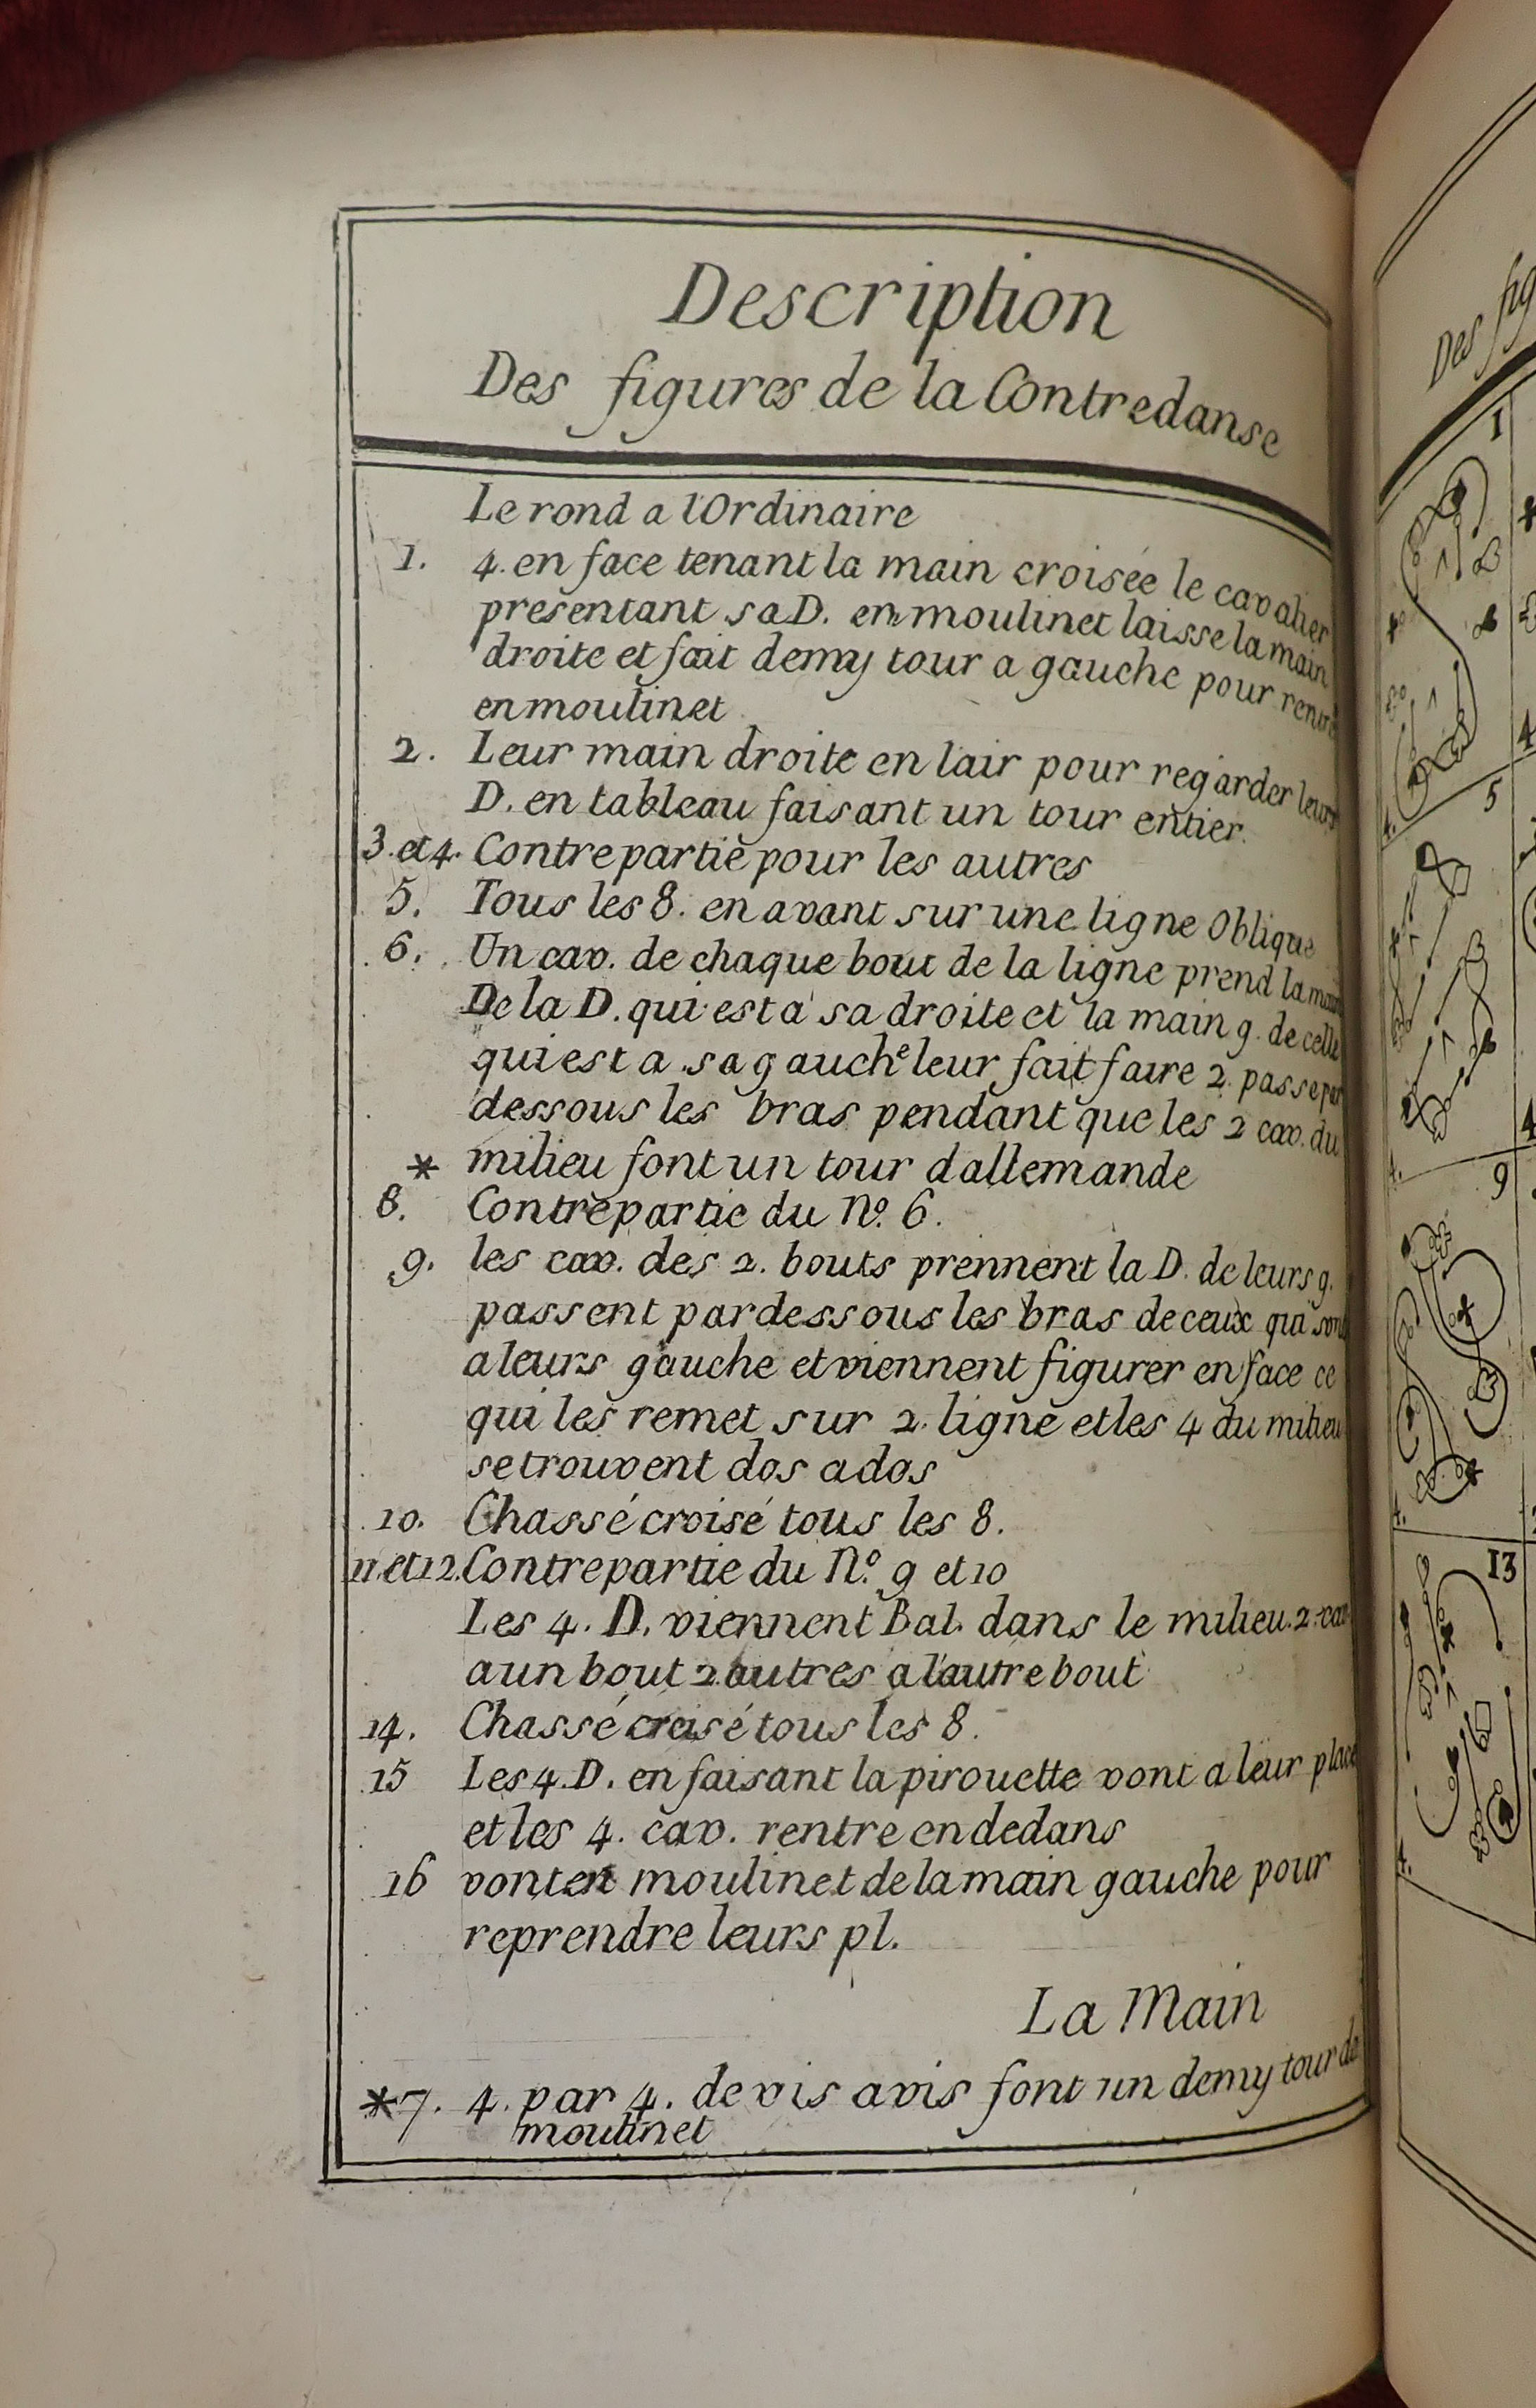 Description
Des figures de la Contredanse
Le rond a l'Ordinaire
1. 4. en face tenant la main croisée le cavalier
presentant sa D. en moulinet laisse la main
droite et fait demy tour a gauche pour
en moulinet
2. Leur main droite en lair pour regarder leurs
D. en tableau faisant un tour entier.
3. et 4. Contrepartie pour les autres
5. Tous les 8. en avant sur une ligne Oblique
6. Un cav. de chaque bout de la ligne prend la main
De la D. qui est a sa droite et la main g. de celle
qui est a sa gauche leur fait faire 2. passe par
dessous les bras pendant que les 2 cav. du
* milieu font un tour dallemande
8. Contrepartie du No. 6.
9. les cav. des 2. bouts prennent la D. de leurs g.
passent pardessous les bras de ceux qui sont
a leurs gauche et viennent figurer en face ce
qui les remet sur 2. ligne et les 4 du milieu
se trouvent dos a dos
10. Chassé croisé tous les 8.
11. et 12. Contrepartie du No. 9 et 10
Les 4. D. viennent Bal. dans le milieu. 2. cav.
a un bout 2. autres a lautre bout
14. Chassé croisé tous les 8.
15 Les 4. D. en faisant la pirouette vont a leur place
et les 4. cav. rentre en dedans
16 vont en moulinet de la main gauche pour
reprendre leurs pl.
La Main
*7. 4. par 4. de vis a vis font un demy tour de
moulinet
Des fig
1
4
5
4
9
13